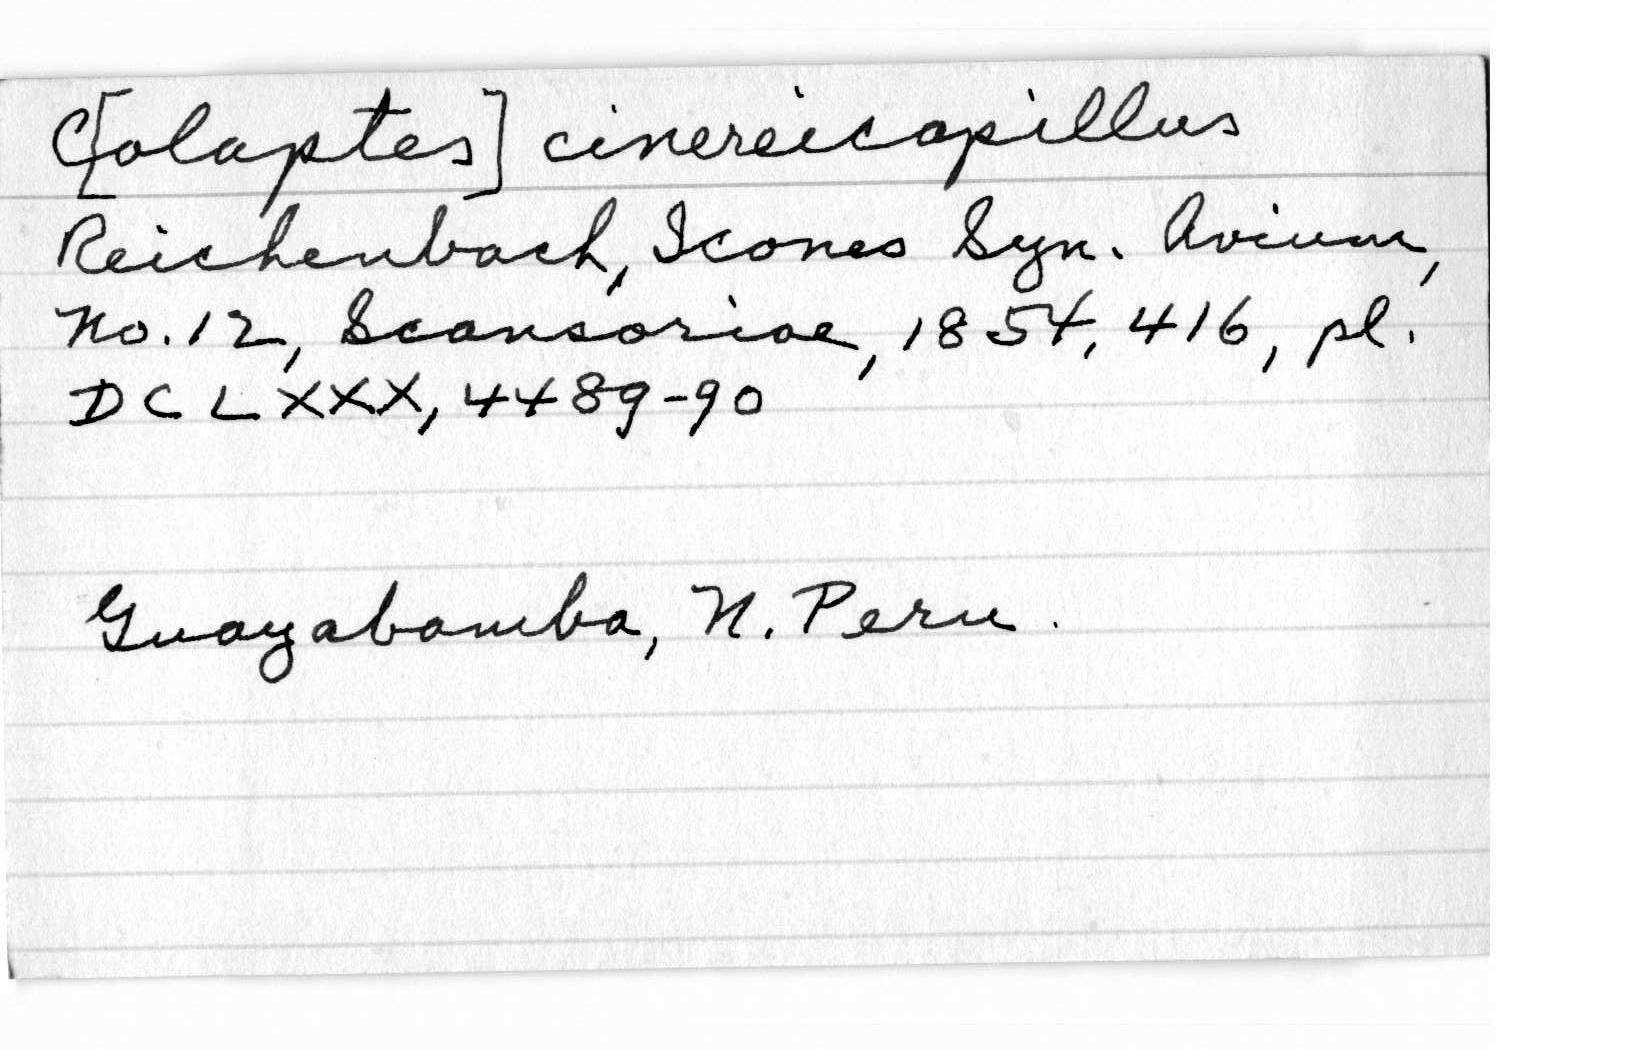 C[olaptes] cinereicapillus
Reichenbach, Icones Syn. Avium,
No. 12, Scansoriae, 1854, 416, pl.
DCLXXX, 4489-90
Guayabamba, N. Peru.